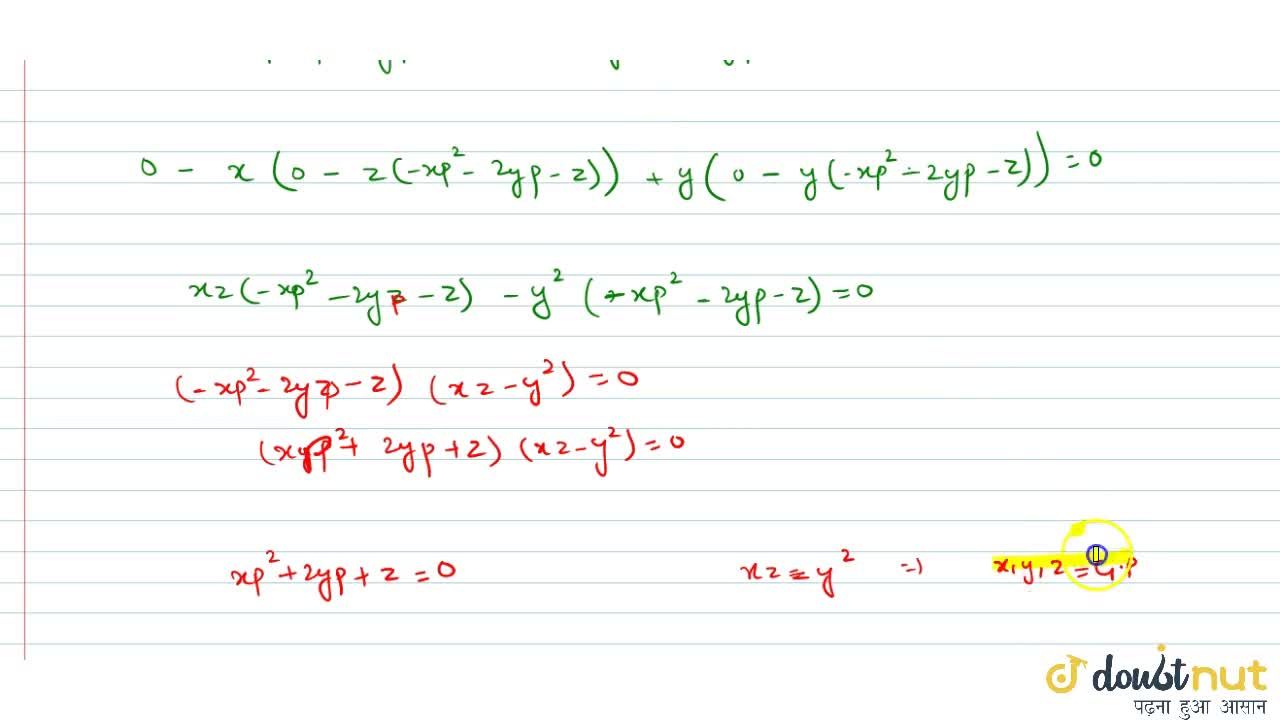 0 - x (0 - z(-xp² - 2yp - z)) + y (0 - y(-xp² - 2yp - z)) = 0
xz(-xp² - 2yp - z) - y² (-xp² - 2yp - z) = 0
(-xp² - 2yp - z) (xz - y²) = 0
(xp² + 2yp + z) (xz - y²) = 0
xp² + 2yp + z = 0 xz = y² => x, y, z = G.P
doubtnut
पढ़ना हुआ आसान